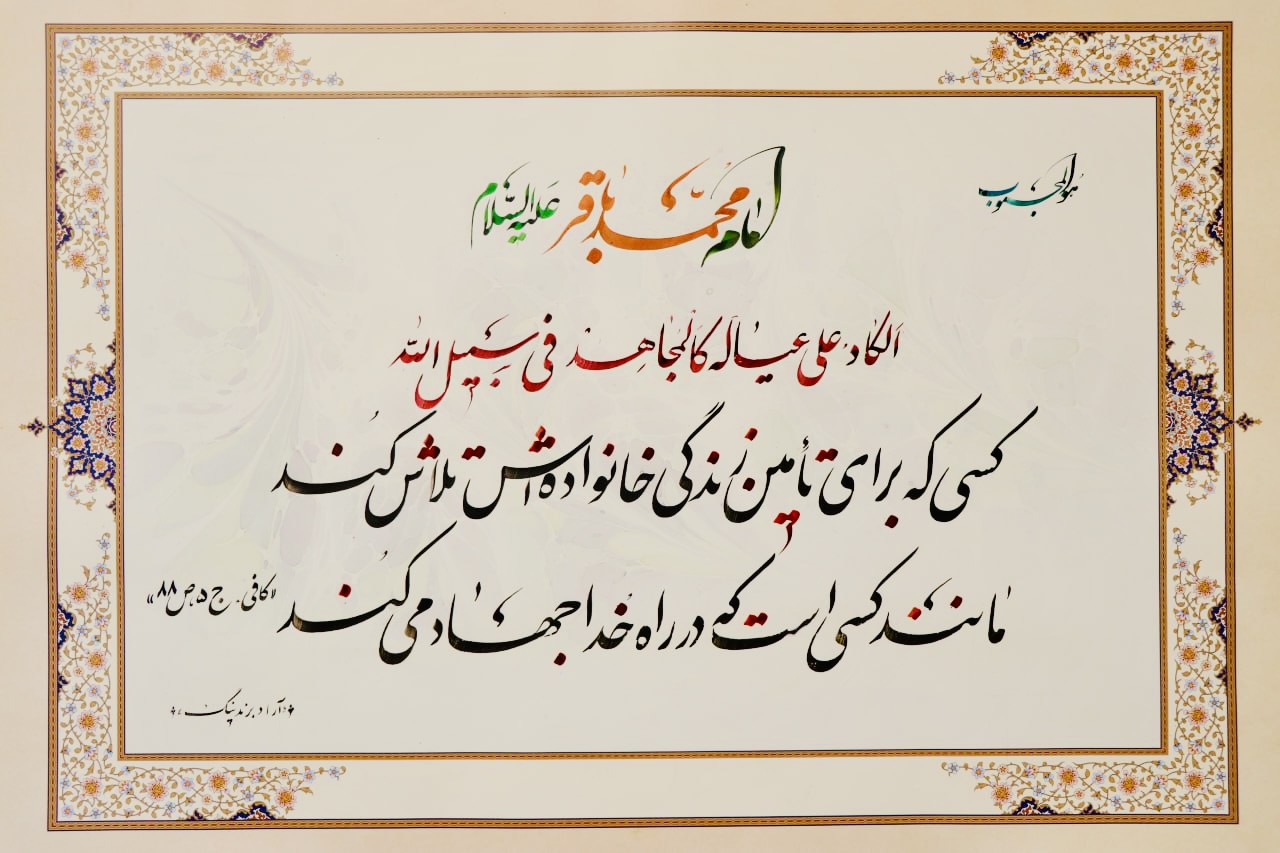 هوالمحبوب
امام محمد باقر عَلیهِ السَّلام
اَلکادُّ علی عیالِه کَالمُجاهِدْ فی سَبیلِ الله
کسی که برای تأمین زندگی خانواده‌اش تلاش کُند
مانند کسی است که در راه خُدا جهاد می کُند
«کافی. ج ۵، ص ۸۸»